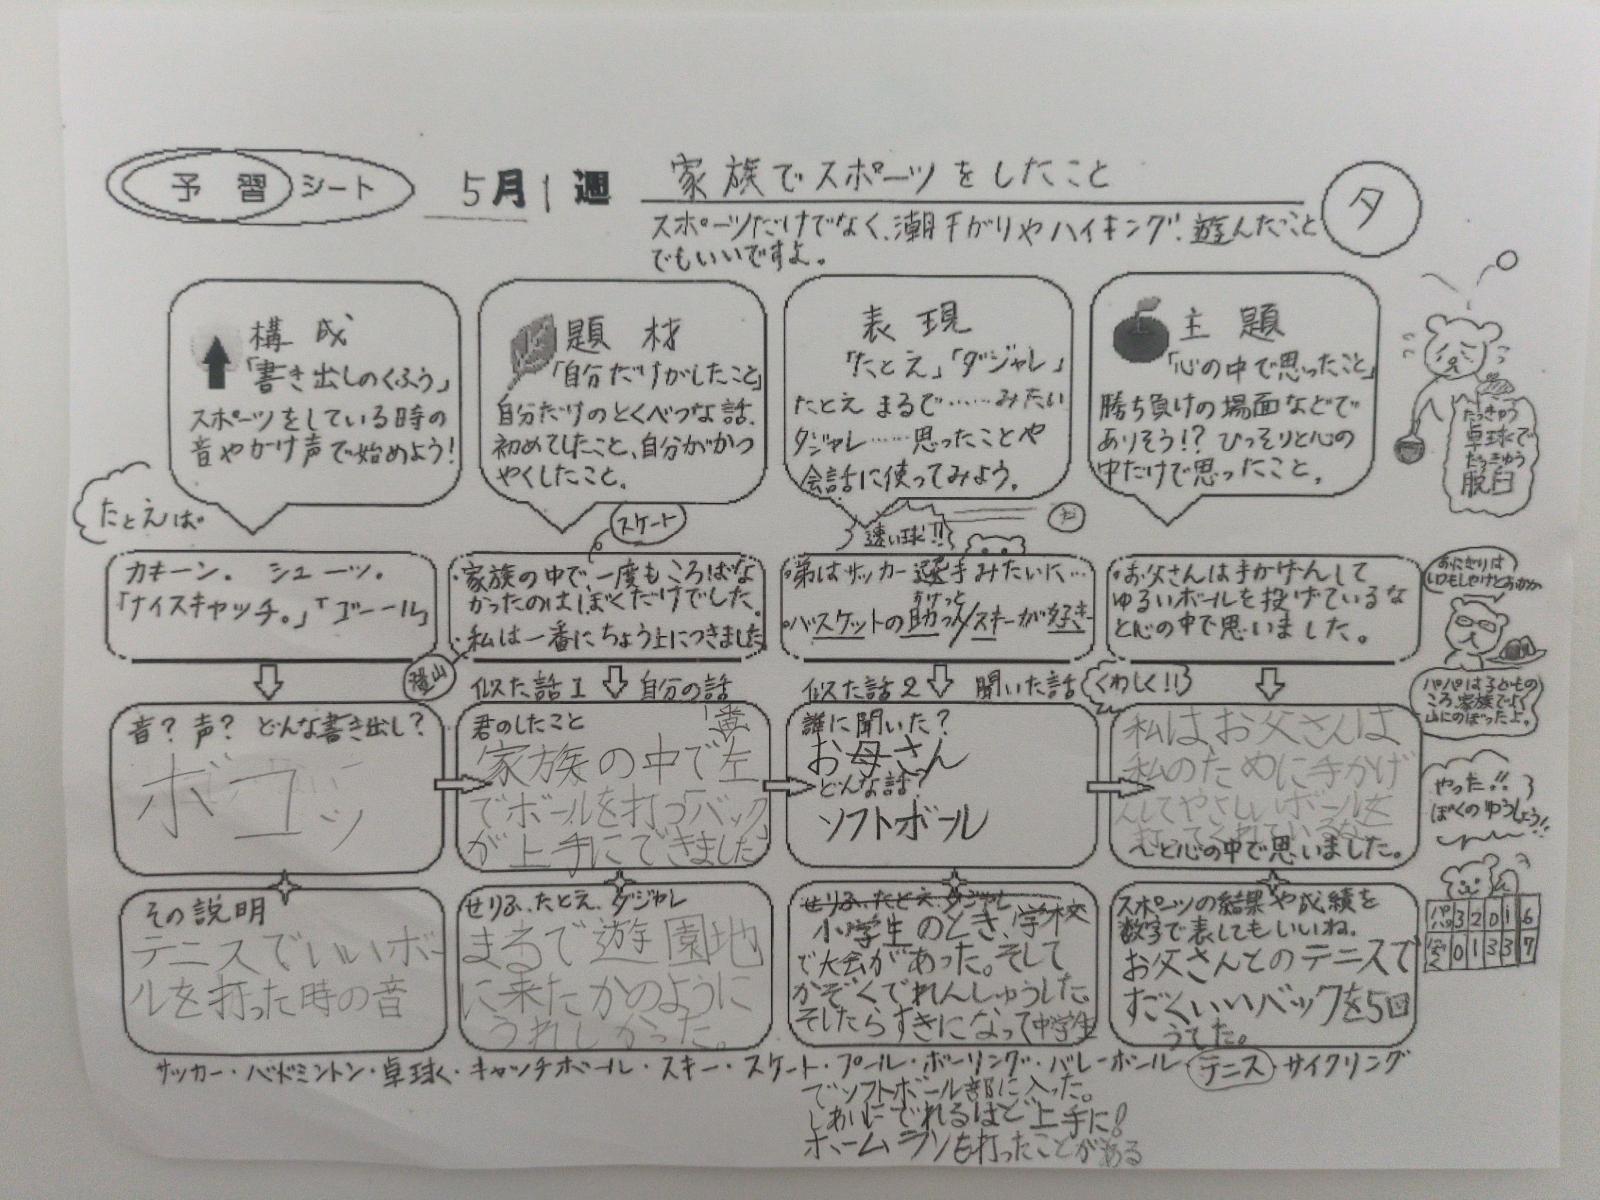 予習シート 5月1週 家族でスポーツをしたこと
タ
スポーツだけでなく、潮干がりやハイキング、遊んだこと
でもいいですよ。
構成
「書き出しのくふう」
スポーツをしている時の
音やかけ声で始めよう!
題材
「自分だけがしたこと」
自分だけのとくべつな話、
初めてしたこと、自分がかつ
やくしたこと。
表現
「たとえ」「ダジャレ」
たとえ まるで……みたい
ダジャレ……思ったことや
会話に使ってみよう。
主題
「心の中で思ったこと」
勝ち負けの場面などで
ありそう!? ひっそりと心の
中だけで思ったこと。
たっきゅう
卓球で
だっきゅう
脱臼
たとえば
カキーン。 シューッ。
「ナイスキャッチ。」「ゴール」
スケート
・家族の中で、一度もころばな
かったのはぼくだけでした。
・私は一番にちょう上につきました
登山
速い球!!
・弟はサッカー選手みたいに…
・バスケットの助っ人/スキーが好き
すけっと
・お父さんは手かげんして
ゆるいボールを投げているな
と心の中で思いました。
おにぎりは
いつもしゃけとおかか
パパは子どもの
ころ、家族でよく
山にのぼったよ。
音?声? どんな書き出し?
ボコッ
似た話1 自分の話
君のしたこと
家族の中で左
でボールを打つ「バック」
が上手にできました
似た話2 聞いた話
誰に聞いた?
お母さん
どんな話?
ソフトボール
くわしく!!
私はお父さんは
私のために手かげ
んしてやさしいボールを
打ってくれているな
と心の中で思いました。
やった!!
ぼくのゆうしょう!!
その説明
テニスでいいボー
ルを打った時の音
せりふ、たとえ、ダジャレ
まるで遊園地
に来たかのように
うれしかった。
せりふ、たとえ、ダジャレ
小学生のとき、学校
で大会があった。そして
かぞくでれんしゅうした。
そしたらすきになって中学生
でソフトボール部に入った。
しあいにでれるほど上手に!
ホームランも打ったことがある
スポーツの結果や成績を
数字で表してもいいね。
お父さんとのテニスで
すごくいいバックを5回
うてた。
パパ 3 2 0 1 6
ぼく 0 1 3 3 7
サッカー・バドミントン・卓球・キャッチボール・スキー・スケート・プール・ボーリング・バレーボール・テニス・サイクリング